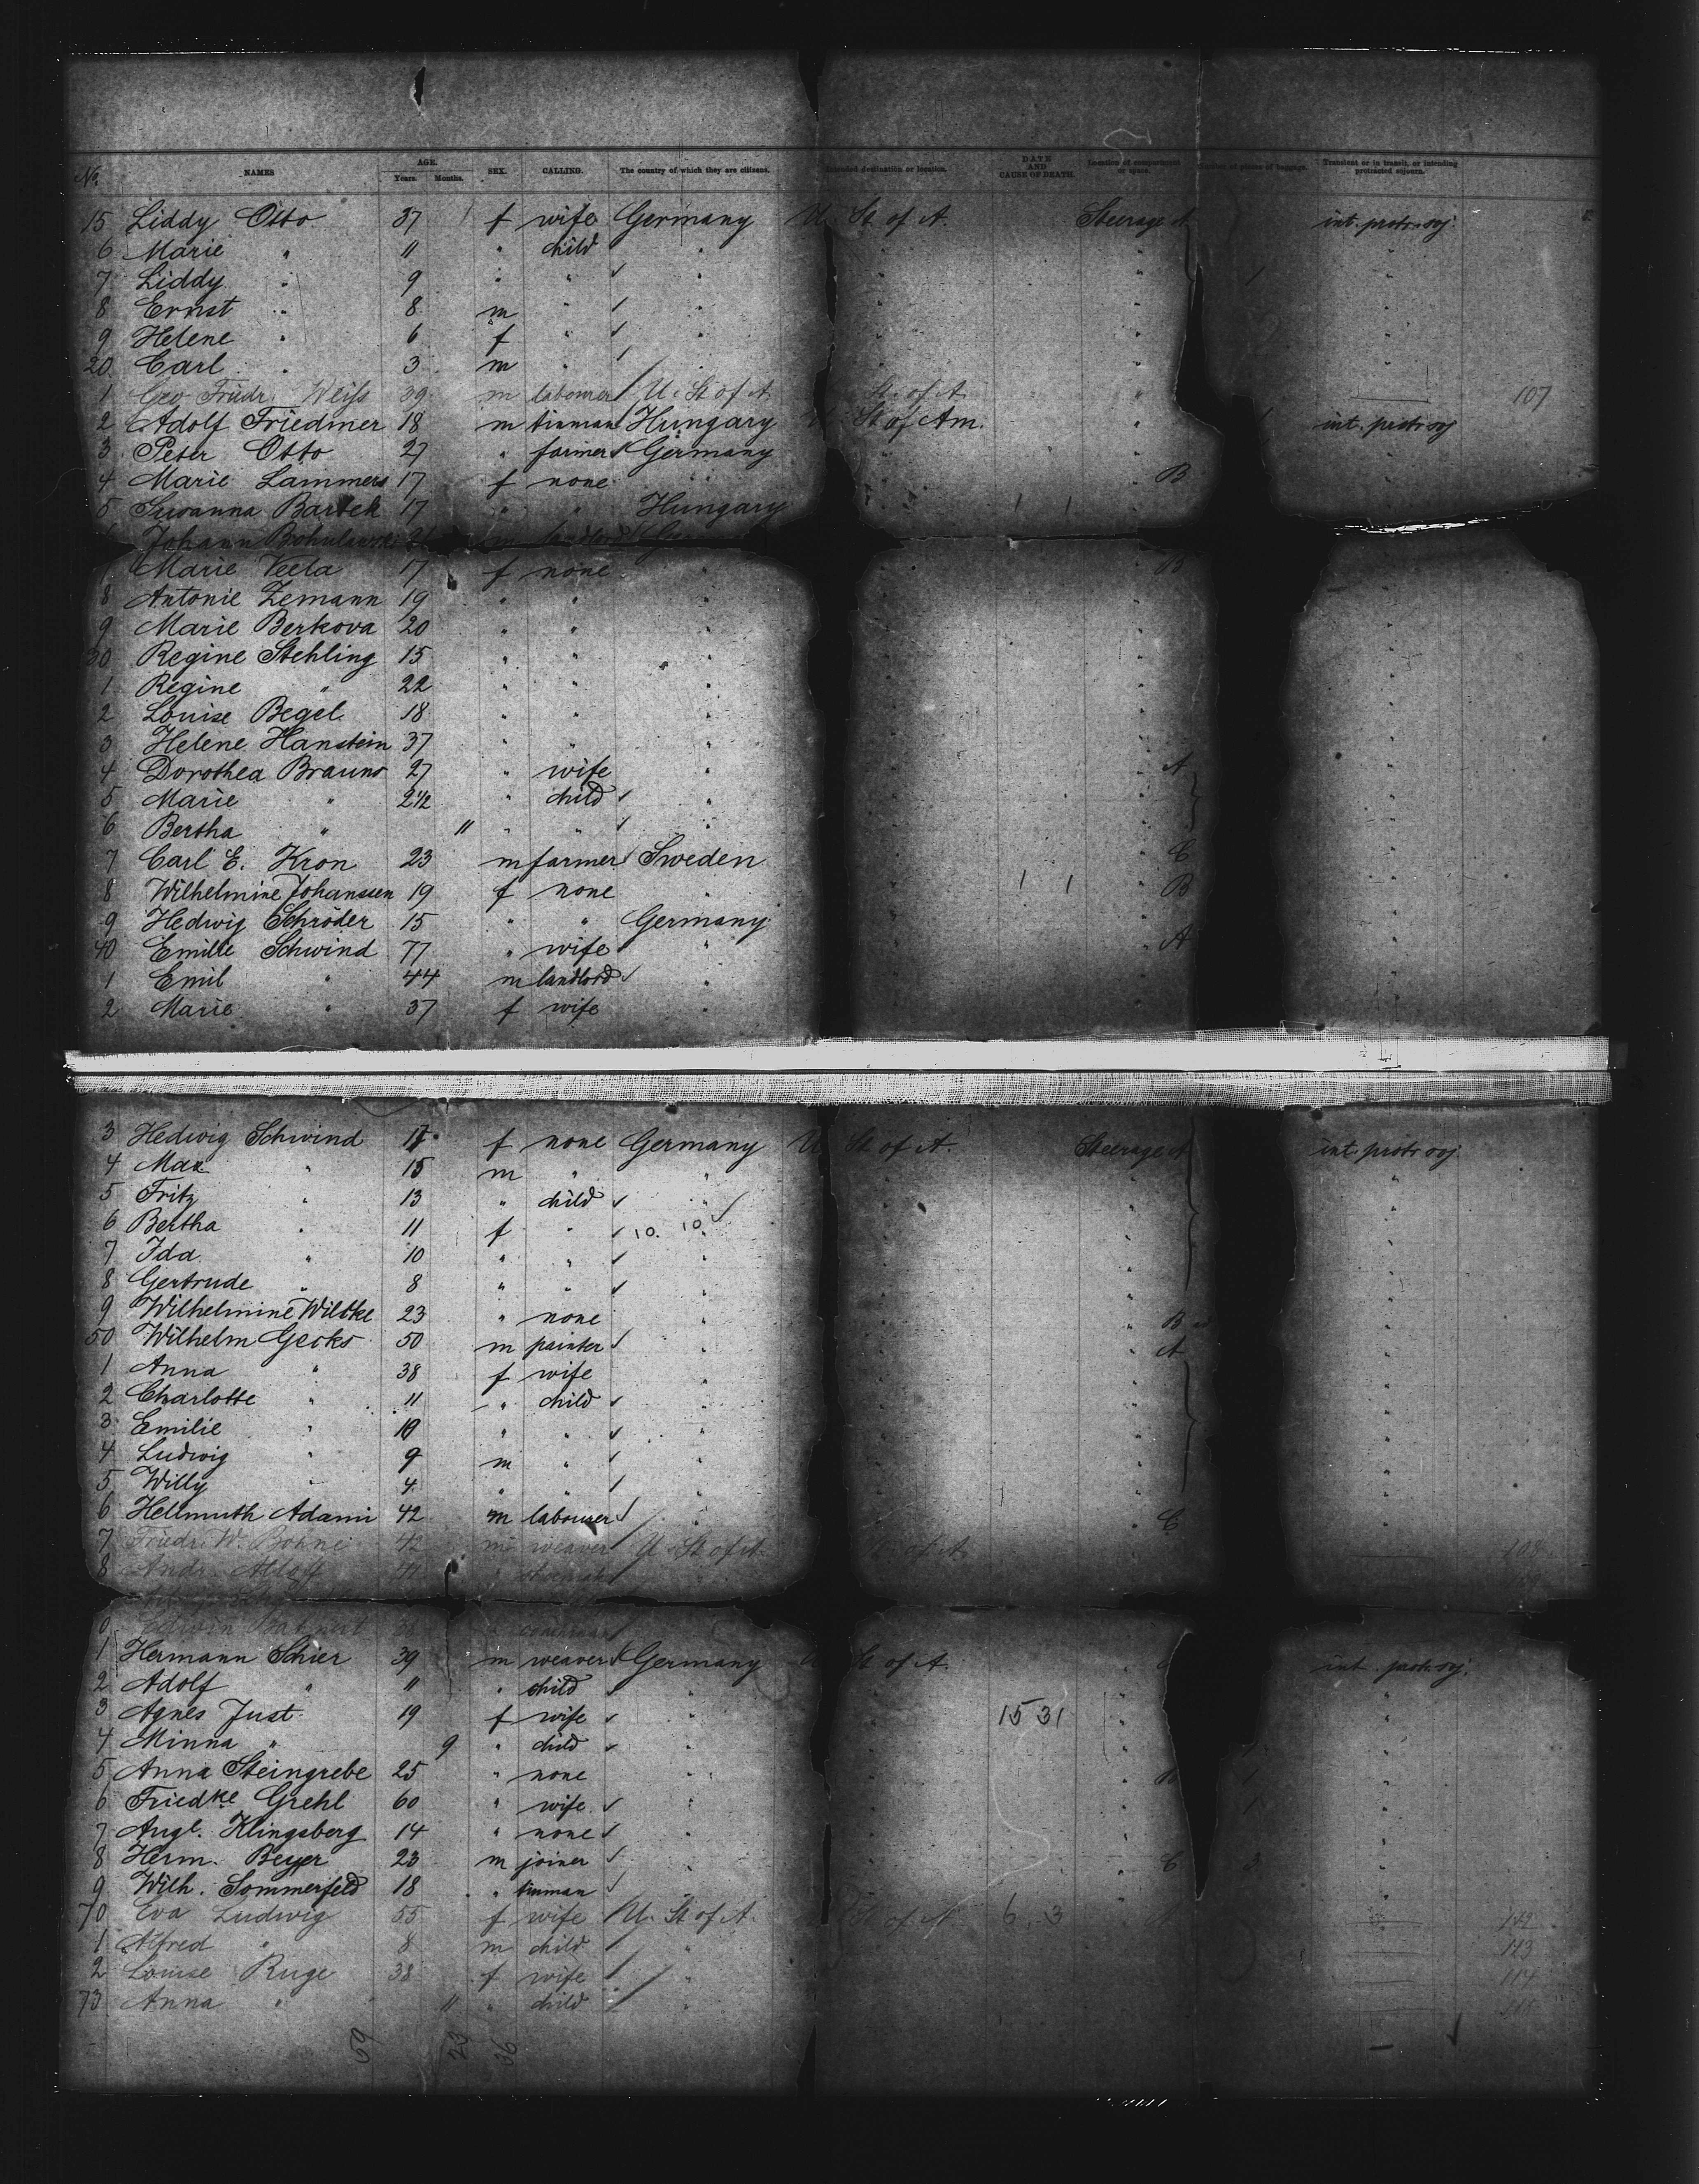 No. NAMES AGE. Years. Months. SEX. CALLING. The country of which they are citizens. Intended destination or location. DATE AND CAUSE OF DEATH. Location of compartment or space. Number of pieces of baggage. Transient or in transit, or intending protracted sojourn.
15 Liddy Otto 37 f wife Germany U. St of A. Steerage A int. protr. soj.
6 Marie " 11 " child "
7 Liddy " 9 " " "
8 Ernst " 8 m " "
9 Helene " 6 f " "
20 Carl " 3 m " "
1 Geo Friedr. Weiss 39 m labourer U. St of A. St. of A. 107
2 Adolf Friedmer 18 m tinman Hungary U. St of Am. int. protr soj
3 Peter Otto 27 " farmer Germany
4 Marie Lammers 17 f none " B
5 Susanna Bartek 17 " " Hungary 1 1
Johann m landlord
Marie Veela 17 f none " B
8 Antonie Zemann 19 " " "
9 Marie Berkova 20 " " "
30 Regine Stehling 15 " " "
1 Regine " 22 " " "
2 Louise Begel 18 " " "
3 Helene Hanstein 37 " " "
4 Dorothea Brauns 27 " wife " A
5 Marie " 2 1/2 " child "
6 Bertha " 11 " " "
7 Carl E. Kron 23 m farmer Sweden C
8 Wilhelmine Johanssen 19 f none " 1 1 B
9 Hedwig Schröder 15 " " Germany
40 Emilie Schwind 77 " wife " A
1 Emil " 44 m landlord "
2 Marie " 37 f wife "
3 Hedwig Schwind 17 f none Germany U. St of A. Steerage A int. protr soj
4 Max " 15 m " "
5 Fritz " 13 " child "
6 Bertha " 11 f " 10. 10 "
7 Ida " 10 " " "
8 Gertrude " 8 " " "
9 Wilhelmine Wilske 23 " none " B
50 Wilhelm Gecks 50 m painter " A
1 Anna " 38 f wife "
2 Charlotte " 11 " child "
3 Emilie " 10 " " "
4 Ludwig " 9 m " "
5 Willy " 4 " " "
6 Hellmuth Adami 42 m labourer " C
7 Friedr. W. Bohne 42 m weaver U. St of A. St. of A. 108
8 Andr.
0 Edwin
1 Hermann Schier 39 m weaver Germany U St of A. int. protr. soj.
2 Adolf " 11 " child "
3 Agnes Just 19 f wife " 15 31
4 Minna " 9 " child "
5 Anna Steingrebe 25 " none "
6 Friedke Grehl 60 " wife "
7 Augl. Klingsberg 14 " none "
8 Herm. Beyer 23 m joiner " C 3
9 Wilh. Sommerfeld 18 " tinman
70 Eva Ludwig 55 f wife U. St of A. of A 6 3 A 112
1 Alfred " 8 m child " 113
2 Louise Ruge 38 f wife " 114
73 Anna " 11 " child "
59 23 36